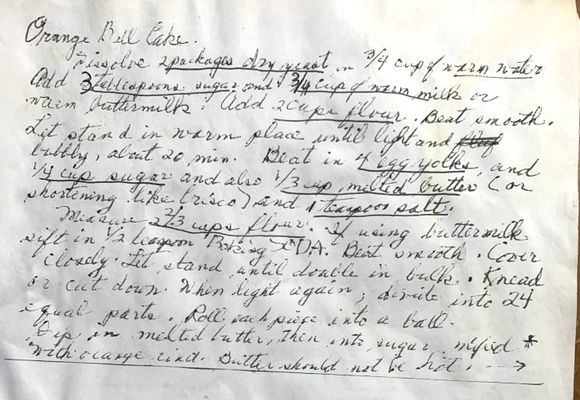 Orange Bell Cake.
Dissolve 2 packages dry yeast in 3/4 cup of warm water
Add 3 tablespoons sugar and 3/4 cup of warm milk or
warm buttermilk. Add 2 cups flour. Beat smooth.
Let stand in warm place until light and
bubbly, about 20 min. Beat in 4 egg yolks, and
1/4 cup sugar and also 1/3 cup melted butter (or
shortening like Crisco) and 1 teaspoon salt.
Measure 2 2/3 cups flour. If using buttermilk
sift in 1/2 teaspoon Baking SODA. Beat smooth. Cover
closely. Let stand until double in bulk. Knead
or cut down. When light again, divide into 24
equal parts. Roll each piece into a ball.
Dip in melted butter, then into sugar, mixed *
with orange rind. Butter should not be hot. →